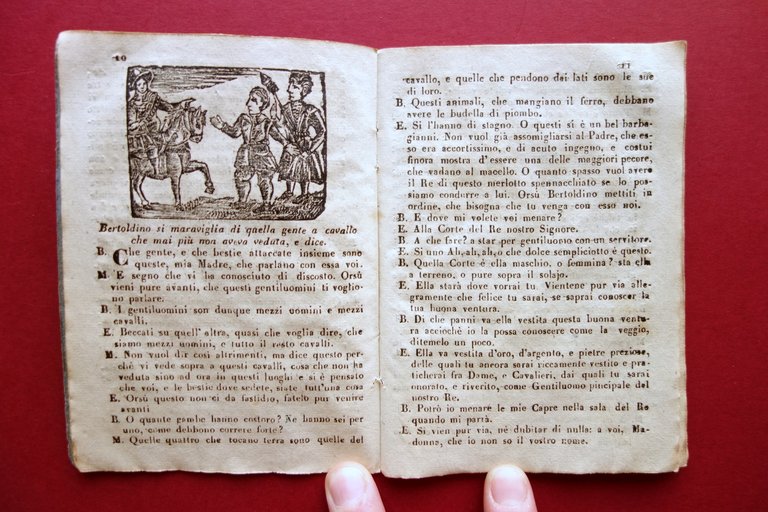 10
Bertoldino si maraviglia di quella gente a cavallo
che mai più non aveva veduta, e dice.
B. Che gente, e che bestie attaccate insieme sono
queste, mia Madre, che parlano con essa voi.
M. E segno che vi ha conosciuto di discosto. Orsù
vieni pure avanti, che questi gentiluomini ti voglio-
no parlare.
B. I gentiluomini son dunque mezzi uomini e mezzi
cavalli.
E. Beccati su quell'altra, quasi che voglia dire, che
siamo mezzi uomini, e tutto il resto cavalli.
M. Non vuol dir così altrimenti, ma dice questo per-
chè vi vede sopra a questi cavalli, cosa che non ha
veduto sino ad ora in questi luoghi e si è pensato
che voi, e le bestie dove sedete, siate tutt'una cosa
E. Orsù questo non ci da fastidio, fatelo pur venire
avanti
B. O quante gambe hanno costoro? Ne hanno sei per
uno, come debbono correre forte?
M. Quelle quattro che toccano terra sono quelle del
11
cavallo, e quelle che pendono dai lati sono le sue
di loro.
B. Questi animali, che mangiano il ferro, debbano
avere le budella di piombo.
E. Si l'hanno di stagno. O questi sì è un bel barba-
gianni. Non vuol già assomigliarsi al Padre, che es-
so era accortissimo, e di acuto ingegno, e costui
finora mostra d'essere una delle maggiori pecore,
che vadano al macello. O quanto spasso vuol avere
il Re di questo merlotto spennacchiato se lo pos-
siamo condurre a lui. Orsù Bertoldino mettiti in
ordine, che bisogna che tu venga con esso noi.
B. E dove mi volete voi menare?
E. Alla Corte del Re nostro Signore.
B. A che fare? a star per gentiluomo con un servitore.
E. Sì uno Ah, ah, ah, o che dolce sempliciotto è questo.
B. Quella Corte è ella maschio, o femmina? sta ella
a terreno, o pure sopra il solajo.
E. Ella starà dove vorrai tu. Vientene pur via alle-
gramente che felice tu sarai, se saprai conoscer la
tua buona ventura.
B. Di che panni va ella vestita questa buona ventu-
ra acciochè io la possa conoscere come la veggio,
ditemelo un poco.
E. Ella va vestita d'oro, d'argento, e pietre preziose,
delle quali tu ancora sarai riccamente vestito e pra-
ticherai fra Dame, e Cavalieri, dai quali tu sarai
onorato, e riverito, come Gentiluomo pincipale del
nostro Re.
B. Potrò io menare le mie Capre nella sala del Re
quando mi parrà.
E. Sì vien pur via, nè dubitar di nulla: a voi, Ma-
donna, che io non so il vostro nome.